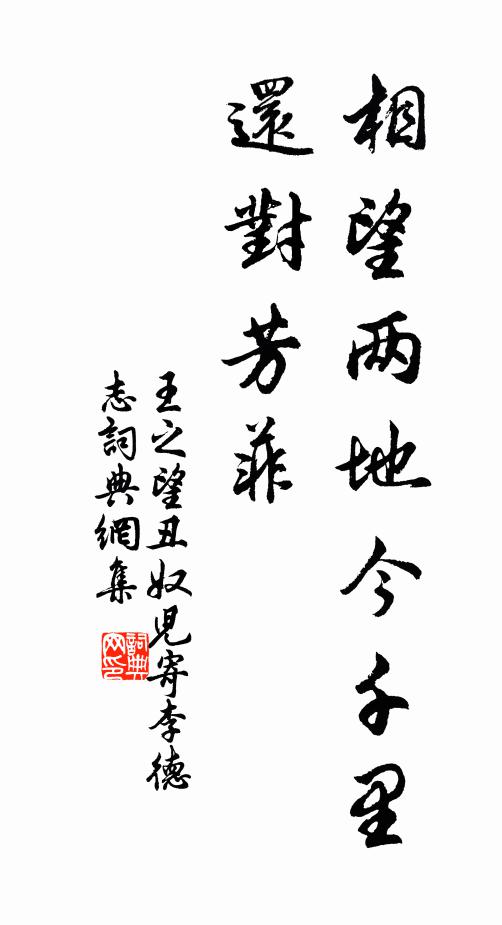 相望两地今千里
還對芳菲
王之望丑奴児寄李德
志詞典網集
詞典网印